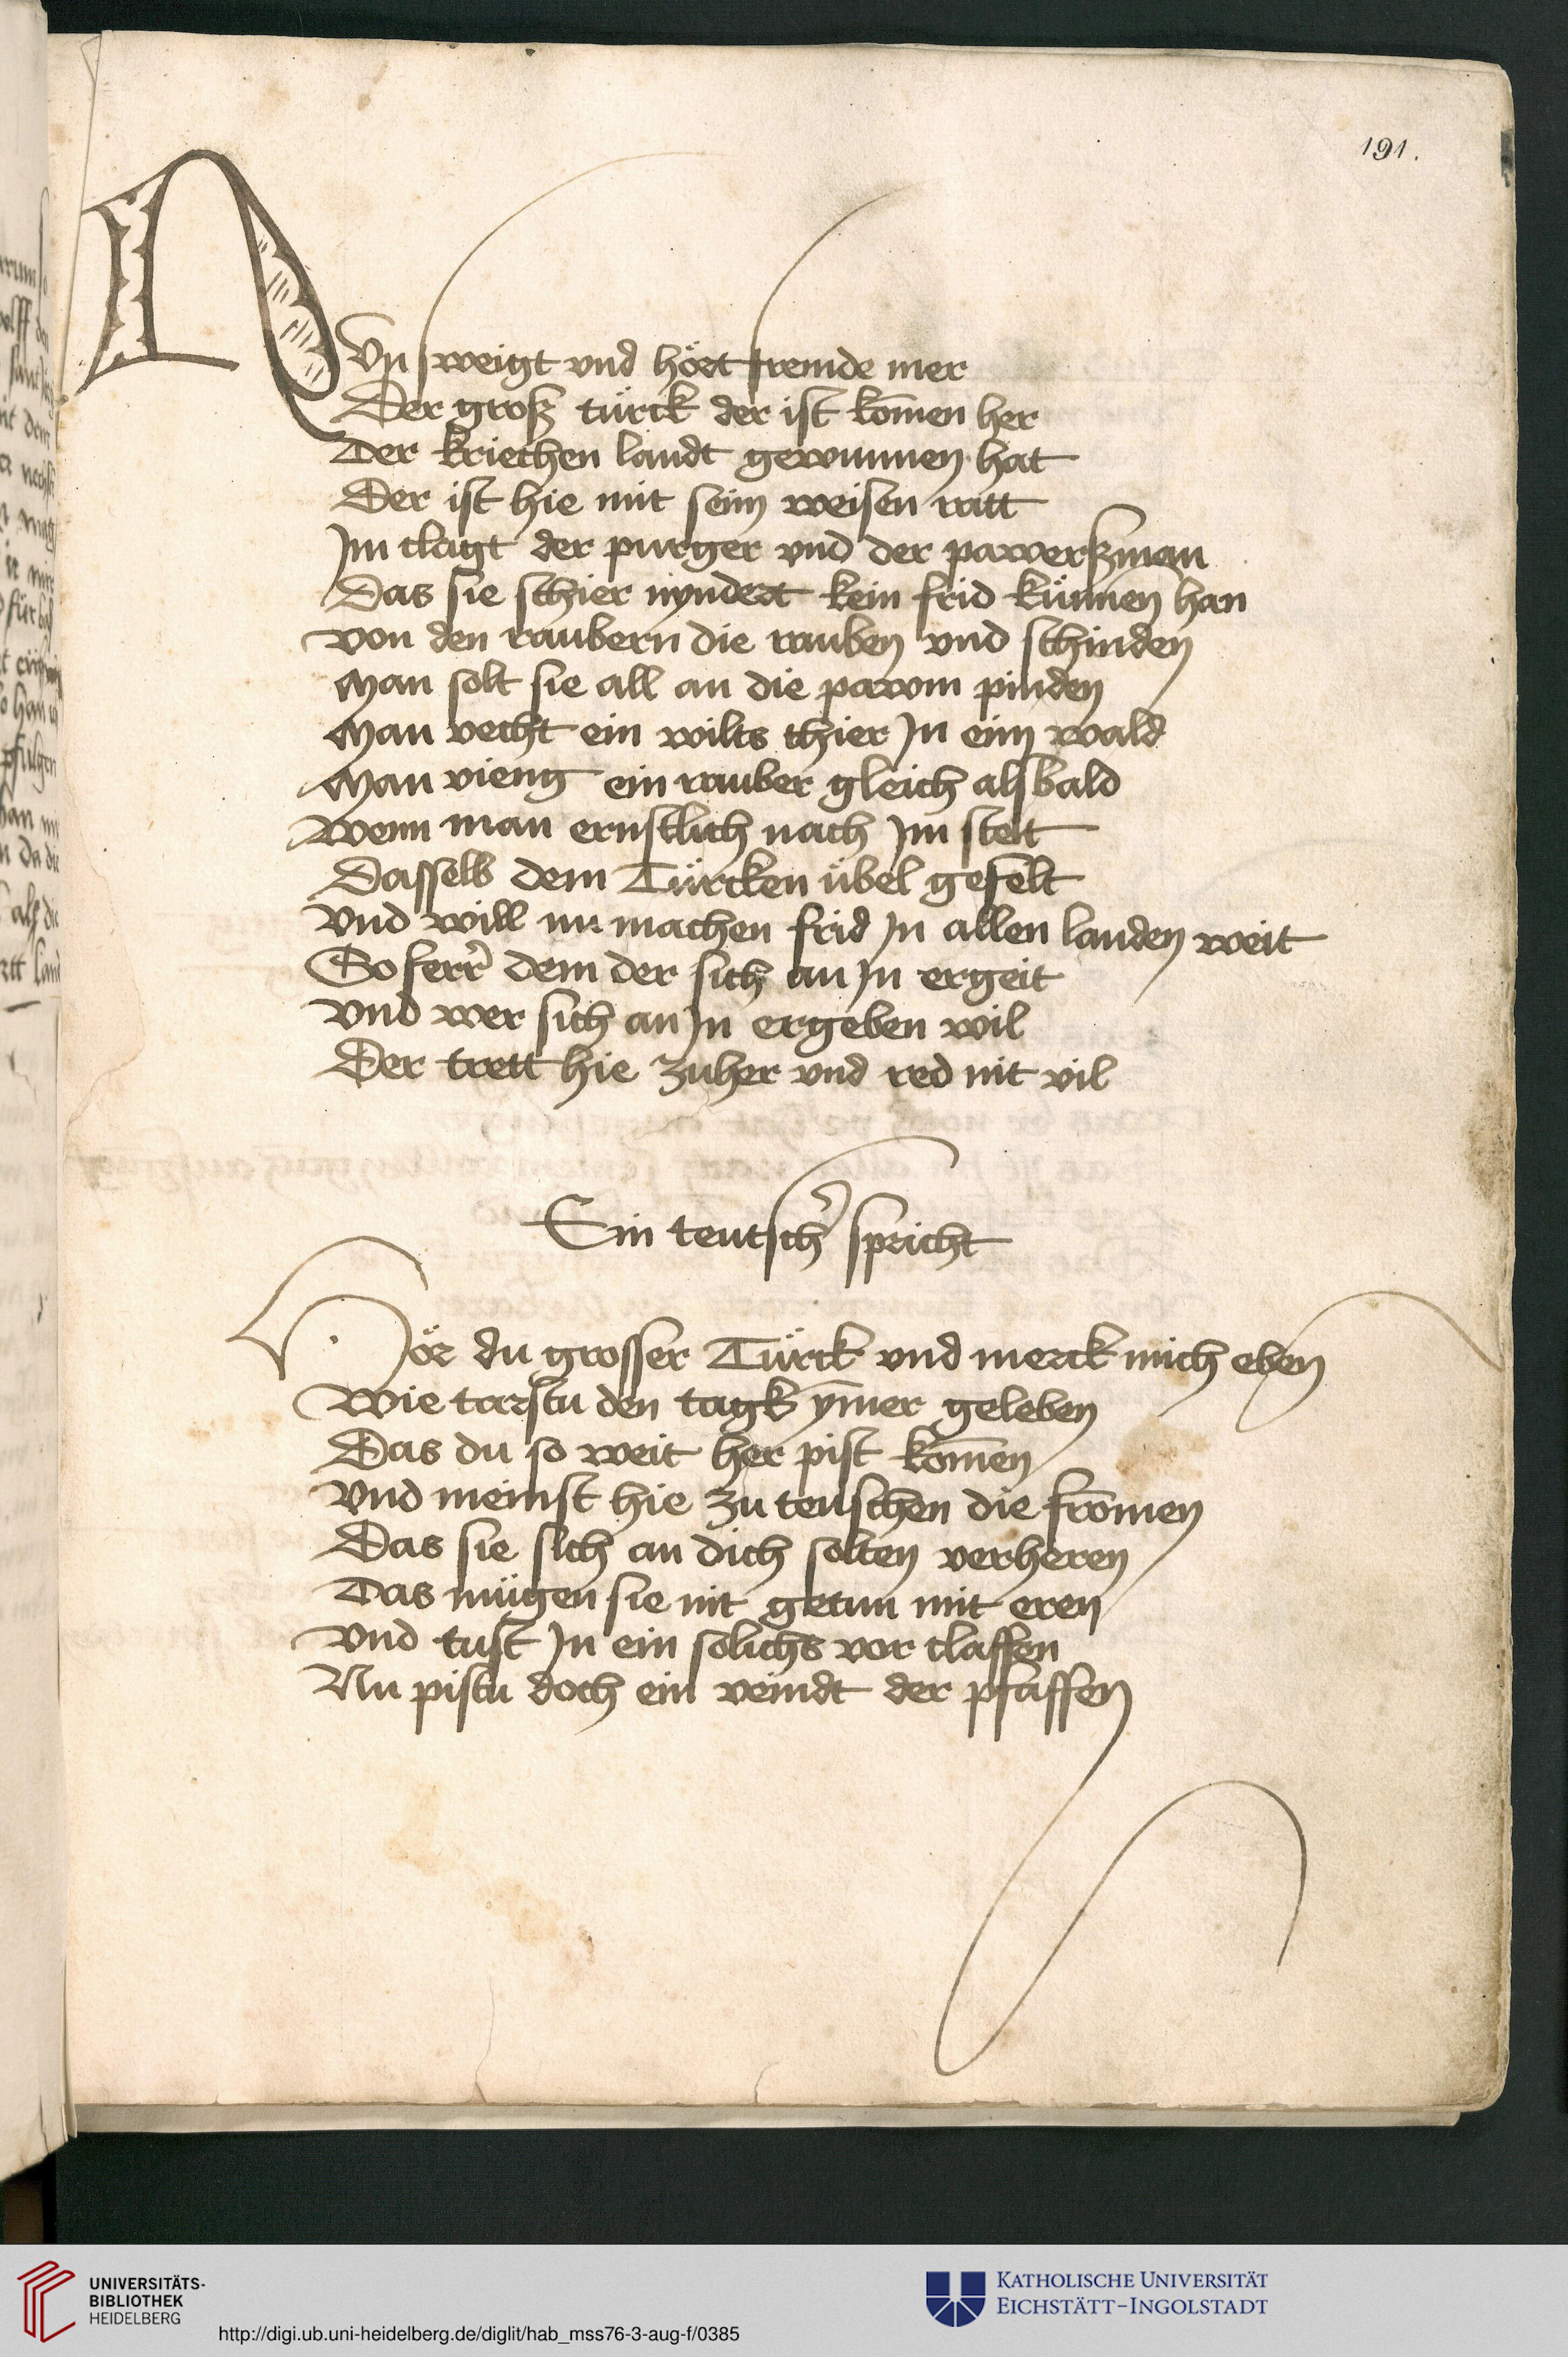 191.
NVn sweigt vnd hört fremde mer
Der groß türck der ist kōmen her
Der kriechen landt gewunnen hat
Der ist hie mit seim weisen ratt
Jm clagt der purger vnd der pawerßman
Das sie schier nyndert kein frid künnen han
von den raubern die rauben vnd schinden
Man solt sie all an die pawm pinden
Man vecht ein wilts thier Jn eim wald
Man vieng ein rauber gleich alsbald
Wenn man ernstlich nach Jm stelt
Dasselb dem Türcken übel gefelt
vnd will nu machen frid Jn allen landen weit
So ferr dem der sich an Jn ergeit
vnd wer sich an Jn ergeben wil
Der trett hie zuher vnd red nit vil
Ein teutscher spricht
Hör du grosser Türck vnd merck mich eben
Wie tarstu den tagk ym̄er geleben
Das du so weit her pist kom̄en
vnd meinst hie zu teuschen die from̄en
Das sie sich an dich solten verheren
Das mügen sie nit getun mit eren
vnd tust Jn ein solichs vor claffen
Nu pistu doch ein veindt der pfaffen
UNIVERSITÄTS-
BIBLIOTHEK
HEIDELBERG
http://digi.ub.uni-heidelberg.de/diglit/hab_mss76-3-aug-f/0385
KATHOLISCHE UNIVERSITÄT
EICHSTÄTT-INGOLSTADT